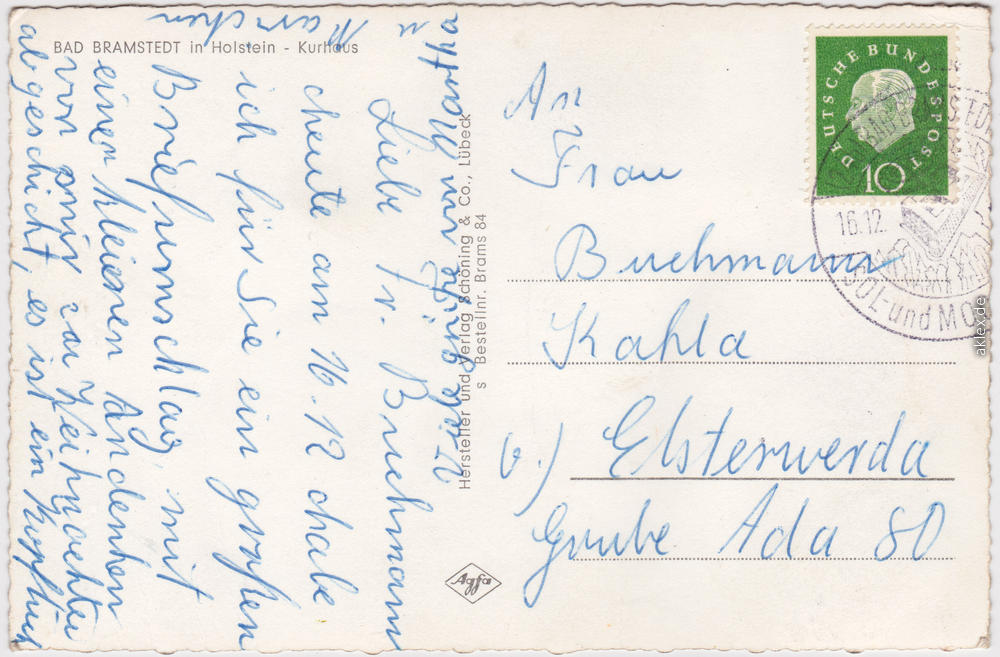 BAD BRAMSTEDT in Holstein - Kurhaus
Liebe Fr. Buchmann
cheute am 16.12 chabe
ich für Sie ein großen
Briefumschlag, mit
einen kleienen Andenken
von mir zu Weihnachten
abgeschickt, es ist ein Kopftuch
Hersteller und Verlag Schöning & Co., Lübeck
s Bestellnr. Brams 84
Agfa
An
Frau
Buchmann
Kahla
b.) Elsterwerda
Grube Ada 80
DEUTSCHE BUNDESPOST
10
16.12.
SOL- und MO
aklex.de